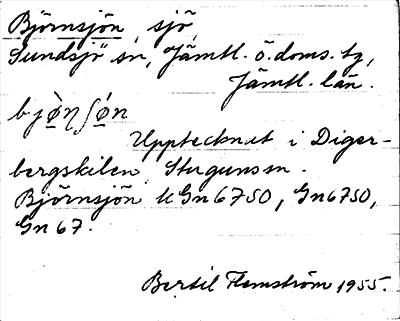 Björnsjön, sjö,
Sundsjö sn, Jämtl. ö. doms. tg,
Jämtl. län.
Upptecknat i Diger-
bergskilen, Stugunsn.
Björnsjön k Gn 6750, Gn 6750,
Gn 67.
Bertil Flemström 1955.